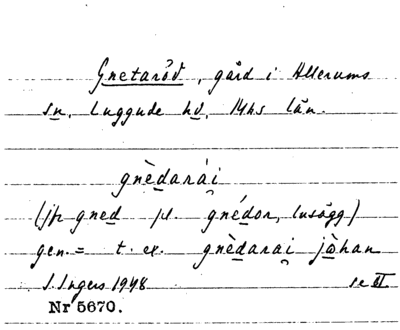 Gnetaröd, gård i Allerums
sn, Luggude hd, Mhs län.
gnèdarái
(jfr gned pl. gnédor, lusägg)
gen. = t. ex. gnèdarai jòhan
I. Ingers 1948 se III.
Nr 5670.